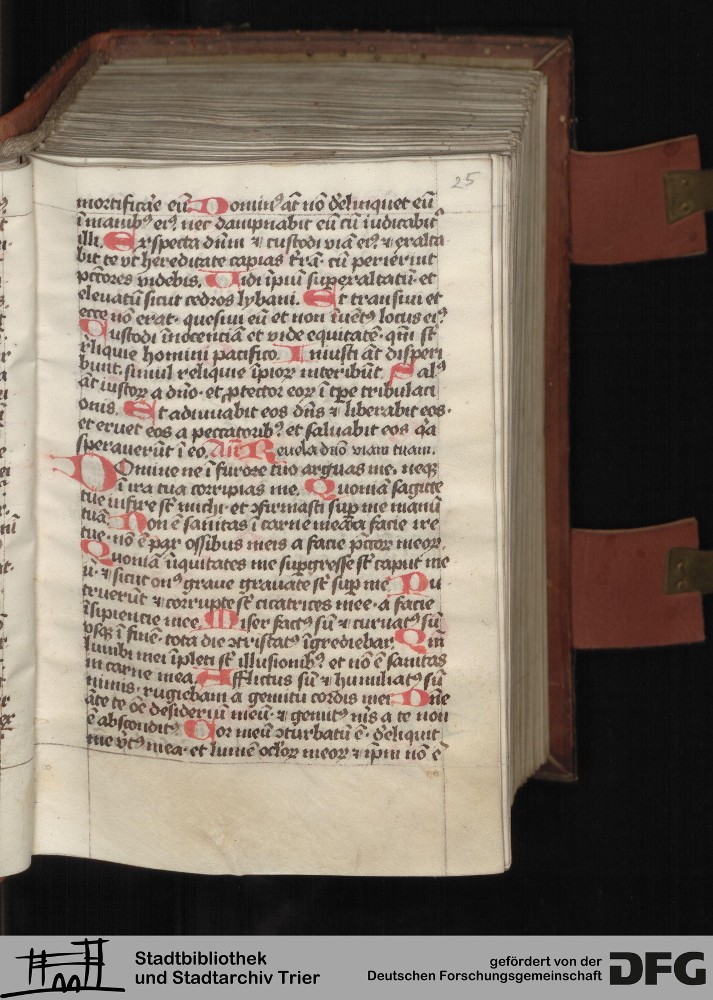 25
mortificare eū. Dominꝰ āt nō d'elinquet eū
ī manibꝰ eiꝰ nec dampnabit eū cū iudicabit̄
illi. Exspecta dūm ⁊ custodi viā eiꝰ ⁊ exalta
bit te vt hereditate capias t'rā· cū perierint
pctōres videbis. Uidi īpiū superaltatū· et
eleuatū sicut cedros lybani. Et transiui et
ecce nō erat· quesiui eū et non īuētꝰ locus eiꝰ
Custodi īnocentiā et vide equitatē· qm̄ st̄
r'liquie homini pacifico. Iniusti āt disperi
bunt. simul reliquie īpioꝝ interibūt. Salꝰ
āt iustoꝝ a dn̄o· et ꝓtector eoꝝ ī tꝑe tribulati
onis. Et adiuuabit eos dn̄s ⁊ liberabit eos·
et eruet eos a peccatoribꝰ et saluabit eos q'a
sperauerūt ī eo. Añ Reuela dn̄o viam tuam.
Domine ne ī furore tuo arguas me· neqꝫ
ī ira tua corripias me. Quoniā sagitte
tue infixe st̄ michi· et ꝯfirmasti suꝑ me manū
tuā. Non ē sanitas ī carne mea a facie ire
tue· nō ē pax ossibus meis a facie pctōꝝ meoꝝ.
Quoniā īiquitates mee suꝑgresse st̄ caput me
ū· ⁊ sicut onꝰ graue grauate st̄ suꝑ me Pu
truerūt ⁊ corrupte st̄ cicatrices mee· a facie
īsipiencie mee. Miser factꝰ sū ⁊ curuatꝰ sū
vsqꝫ ī finē· tota die ꝯtristatꝰ īgrediebar. Qm̄
lumbi mei īpleti st̄ illusionibꝰ et nō ē sanitas
in carne mea. Afflictus sū ⁊ humiliatꝰ sū
nimis· rugiebam a gemitu cordis mei Dn̄e
āte te oē desideriū meū· ⁊ gemitꝰ mꝰ a te non
ē absconditꝰ. Cor meū ꝯturbatū ē· d'eliquit
me v'tꝰ mea· et lumē ocl'oꝝ meoꝝ ⁊ ip̄m nō ē
Stadtbibliothek
und Stadtarchiv Trier
gefördert von der
Deutschen Forschungsgemeinschaft DFG